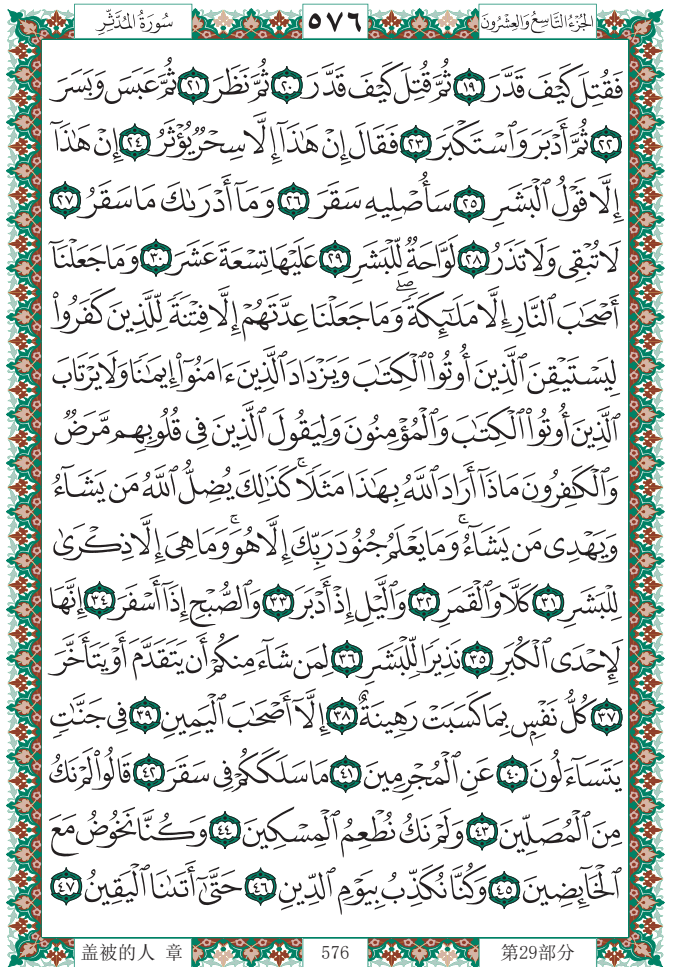 الجُزْءُ التَّاسِعُ وَالعِشْرُونَ ٥٧٦ سُورَةُ المُدَّثِّر
فَقُتِلَ كَيْفَ قَدَّرَ ١٩ ثُمَّ قُتِلَ كَيْفَ قَدَّرَ ٢٠ ثُمَّ نَظَرَ ٢١ ثُمَّ عَبَسَ وَبَسَرَ
٢٢ ثُمَّ أَدْبَرَ وَٱسْتَكْبَرَ ٢٣ فَقَالَ إِنْ هَٰذَآ إِلَّا سِحْرٌ يُؤْثَرُ ٢٤ إِنْ هَٰذَآ
إِلَّا قَوْلُ ٱلْبَشَرِ ٢٥ سَأُصْلِيهِ سَقَرَ ٢٦ وَمَآ أَدْرَىٰكَ مَا سَقَرُ ٢٧
لَا تُبْقِى وَلَا تَذَرُ ٢٨ لَوَّاحَةٌ لِّلْبَشَرِ ٢٩ عَلَيْهَا تِسْعَةَ عَشَرَ ٣٠ وَمَا جَعَلْنَآ
أَصْحَٰبَ ٱلنَّارِ إِلَّا مَلَٰٓئِكَةً ۙ وَمَا جَعَلْنَا عِدَّتَهُمْ إِلَّا فِتْنَةً لِّلَّذِينَ كَفَرُوا۟
لِيَسْتَيْقِنَ ٱلَّذِينَ أُوتُوا۟ ٱلْكِتَٰبَ وَيَزْدَادَ ٱلَّذِينَ ءَامَنُوٓا۟ إِيمَٰنًا وَلَا يَرْتَابَ
ٱلَّذِينَ أُوتُوا۟ ٱلْكِتَٰبَ وَٱلْمُؤْمِنُونَ وَلِيَقُولَ ٱلَّذِينَ فِى قُلُوبِهِم مَّرَضٌ
وَٱلْكَٰفِرُونَ مَاذَآ أَرَادَ ٱللَّهُ بِهَٰذَا مَثَلًا ۚ كَذَٰلِكَ يُضِلُّ ٱللَّهُ مَن يَشَآءُ
وَيَهْدِى مَن يَشَآءُ ۚ وَمَا يَعْلَمُ جُنُودَ رَبِّكَ إِلَّا هُوَ ۚ وَمَا هِىَ إِلَّا ذِكْرَىٰ
لِلْبَشَرِ ٣١ كَلَّا وَٱلْقَمَرِ ٣٢ وَٱلَّيْلِ إِذْ أَدْبَرَ ٣٣ وَٱلصُّبْحِ إِذَآ أَسْفَرَ ٣٤ إِنَّهَا
لَإِحْدَى ٱلْكُبَرِ ٣٥ نَذِيرًا لِّلْبَشَرِ ٣٦ لِمَن شَآءَ مِنكُمْ أَن يَتَقَدَّمَ أَوْ يَتَأَخَّرَ
٣٧ كُلُّ نَفْسٍۭ بِمَا كَسَبَتْ رَهِينَةٌ ٣٨ إِلَّآ أَصْحَٰبَ ٱلْيَمِينِ ٣٩ فِى جَنَّٰتٍ
يَتَسَآءَلُونَ ٤٠ عَنِ ٱلْمُجْرِمِينَ ٤١ مَا سَلَكَكُمْ فِى سَقَرَ ٤٢ قَالُوا۟ لَمْ نَكُ
مِنَ ٱلْمُصَلِّينَ ٤٣ وَلَمْ نَكُ نُطْعِمُ ٱلْمِسْكِينَ ٤٤ وَكُنَّا نَخُوضُ مَعَ
ٱلْخَآئِضِينَ ٤٥ وَكُنَّا نُكَذِّبُ بِيَوْمِ ٱلدِّينِ ٤٦ حَتَّىٰٓ أَتَىٰنَا ٱلْيَقِينُ ٤٧
盖被的人 章 576 第29部分